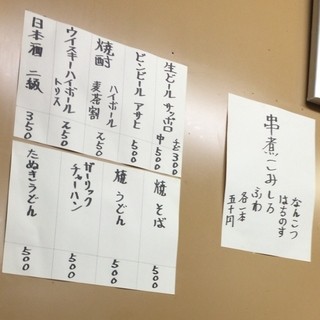 生ビール サッポロ 小300 中500
ビンビール アサヒ 500
焼酎 ハイボール 麦茶割 250
ウイスキーハイボール トリス 250
日本酒 二級 350
焼そば 500
焼うどん 500
ガーリックチャーハン 500
たぬきうどん 500
串煮こみ しろ ふわ
なんこつ
はちのす
各一本
五十円